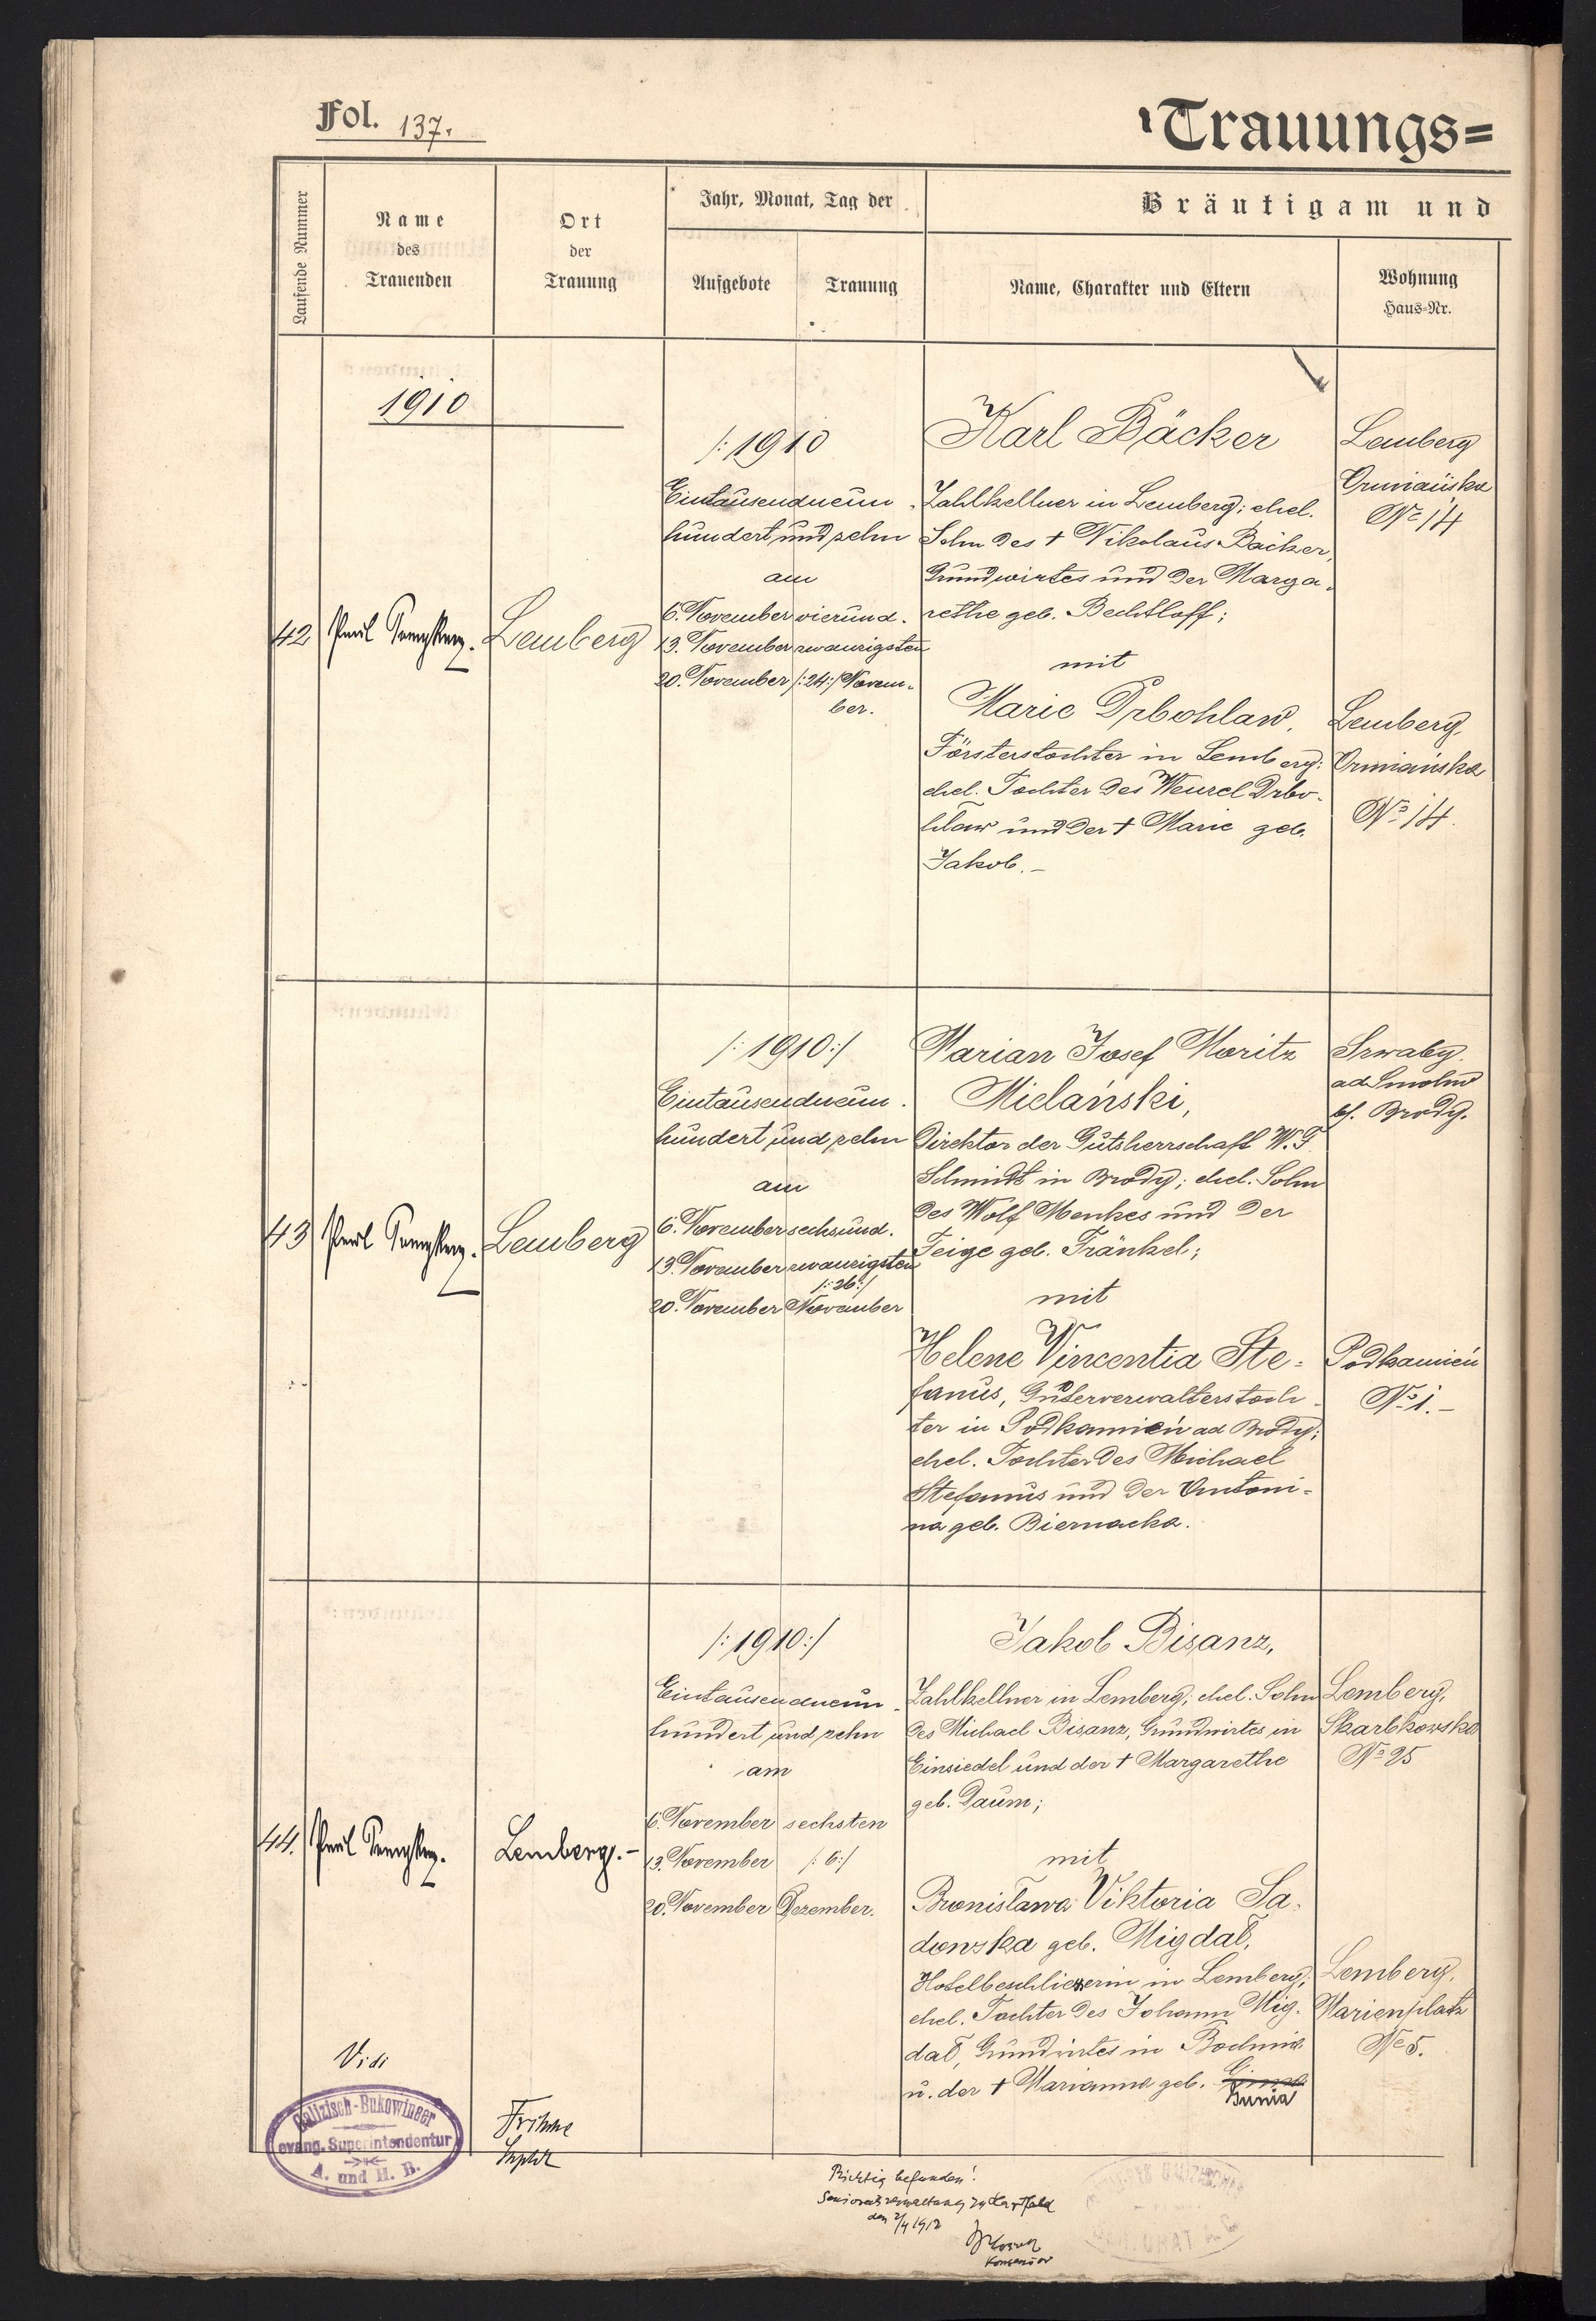 Fol. 137.
Trauungs=
Laufende Nummer
Name
des
Trauenden
Ort
der
Trauung
Jahr, Monat, Tag der
Aufgebote
Trauung
Bräutigam und
Name, Charakter und Eltern
Wohnung
Haus=Nr.
1910
42
Lemberg
/:1910
Eintausendneun-
hundert und zehn
am
6. November vierund-
13. November zwanzigsten
20. November /:24:/ Novem-
ber.
Karl Bäcker
Zahlkellner in Lemberg; ehel.
Sohn des † Nikolaus Bäcker,
Grundwirtes und der Marga-
rethe geb. Bechtloff;
mit
Marie Drbohlaw,
Försterstochter in Lemberg;
ehel. Tochter des Wenzel Drbo-
hlaw und der † Marie geb.
Jakob.-
Lemberg
Ormiańska
No 14
Lemberg,
Ormiańska
No 14.
43
Lemberg
/:1910:/
Eintausendneun-
hundert und zehn
am
6. November sechsund-
13. November zwanzigsten
/:26:/
20. November November
Marian Josef Moritz
Mielański,
Direktor der Gutsherrschaft W. F.
Schmidt in Brody; ehel. Sohn
des Wolf Menkes und der
Feige geb. Fränkel;
mit
Helene Vincentia Ste-
fanus, Güterverwalterstoch-
ter in Podkamień ad Brody;
ehel. Tochter des Michael
Stefanus und der Antoni-
na geb. Biernacka.
Szwaby
ad Smolno
bf. Brody.
Podkamień
No 1.-
44.
Lemberg.-
/:1910:/
Eintausendneun-
hundert und zehn
am
6. November sechsten
13. November /:6:/
20. November Dezember.
Jakob Bisanz,
Zahlkellner in Lemberg; ehel. Sohn
des Michael Bisanz, Grundwirtes in
Einsiedel und der † Margarethe
geb. Daum;
mit
Bronisława Viktoria Sa-
dowska geb. Migdał,
Hotelbeschliesserin in Lemberg;
ehel. Tochter des Johann Mig-
dał, Grundwirtes in Bochnia
u. der † Marianna geb.
Dunia
Lemberg,
Skarbkowska
No 25
Lemberg,
Marienplatz
No 5.
Vidi
Galizisch-Bukowinaer
evang. Superintendentur
A. und H. B.
Fritsche
Suptdt
Richtig befunden!
Senioratsverwaltung
den 2/4 1912
Konsenior